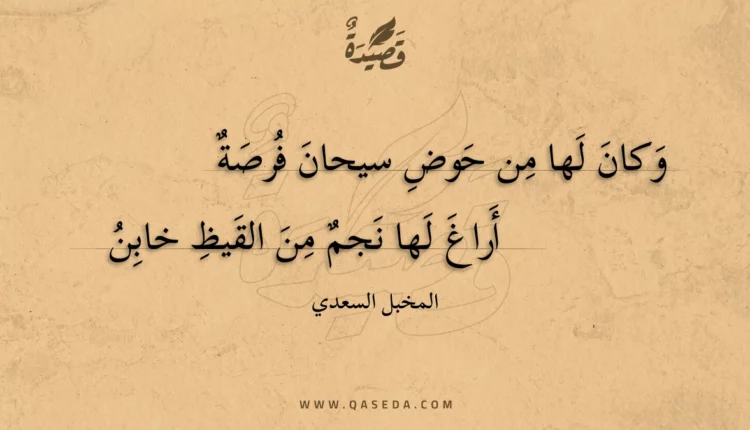 قَصِيْدَةٌ
وَكانَ لَها مِن حَوضِ سيحانَ فُرصَةٌ
أَراغَ لَها نَجمٌ مِنَ القَيظِ خابِنُ
المخبل السعدي
WWW.QASEDA.COM